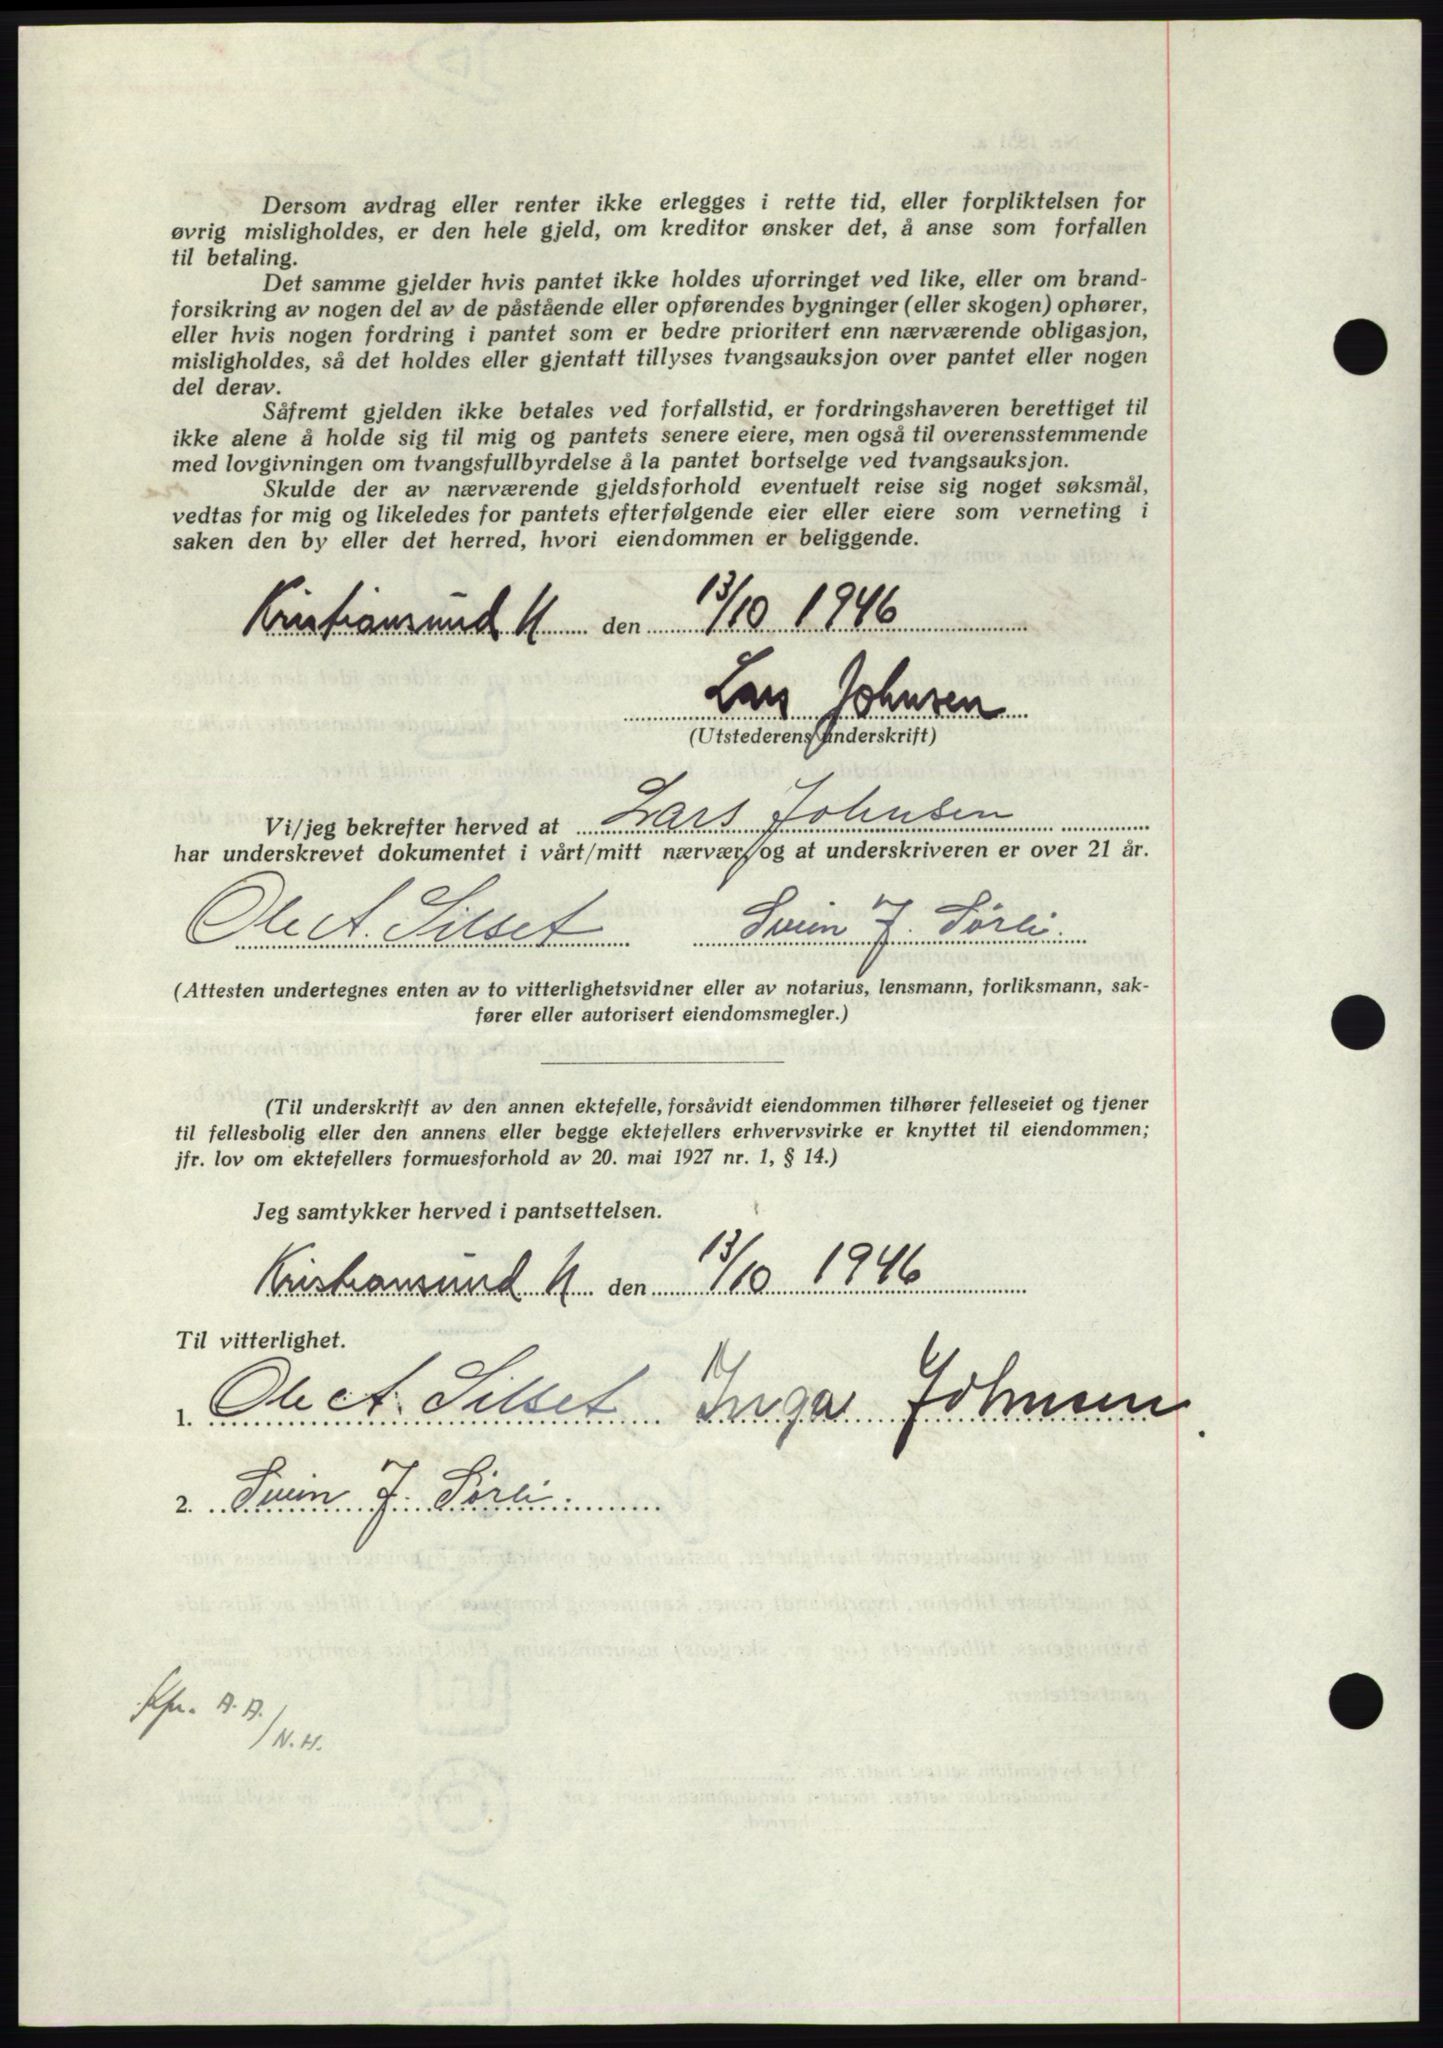 Dersom avdrag eller renter ikke erlegges i rette tid, eller forpliktelsen for
øvrig misligholdes, er den hele gjeld, om kreditor ønsker det, å anse som forfallen
til betaling.
Det samme gjelder hvis pantet ikke holdes uforringet ved like, eller om brand-
forsikring av nogen del av de påstående eller opførendes bygninger (eller skogen) ophører,
eller hvis nogen fordring i pantet som er bedre prioritert enn nærværende obligasjon,
misligholdes, så det holdes eller gjentatt tillyses tvangsauksjon over pantet eller nogen
del derav.
Såfremt gjelden ikke betales ved forfallstid, er fordringshaveren berettiget til
ikke alene å holde sig til mig og pantets senere eiere, men også til overensstemmende
med lovgivningen om tvangsfullbyrdelse å la pantet bortselge ved tvangsauksjon.
Skulde der av nærværende gjeldsforhold eventuelt reise sig noget søksmål,
vedtas for mig og likeledes for pantets efterfølgende eier eller eiere som verneting i
saken den by eller det herred, hvori eiendommen er beliggende.
Kristiansund N den 13/10 1946
Lars Johnsen
(Utstederens underskrift)
Vi/jeg bekrefter herved at Lars Johnsen
har underskrevet dokumentet i vårt/mitt nærvær og at underskriveren er over 21 år.
Silset Svein J. Sørli.
(Attesten undertegnes enten av to vitterlighetsvidner eller av notarius, lensmann, forliksmann, sak-
fører eller autorisert eiendomsmegler.)
(Til underskrift av den annen ektefelle, forsåvidt eiendommen tilhører felleseiet og tjener
til fellesbolig eller den annens eller begge ektefellers erhvervsvirke er knyttet til eiendommen;
jfr. lov om ektefellers formuesforhold av 20. mai 1927 nr. 1, § 14.)
Jeg samtykker herved i pantsettelsen.
Kristiansund N den 13/10 1946
Til vitterlighet.
1. Silset Inga Johnsen.
2. Svein J. Sørli.
/N.H.